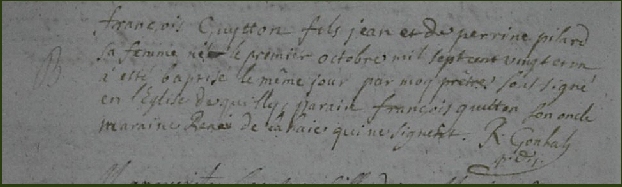 B
françois Guitton fils jean et de perrine pilard
sa femme né le premier octobre mil sept cent vingt et un
a été baptisé le même jour par moy prêtre sous signé
en l'Église de quilly, parain françois guitton son oncle
maraine de la haie qui ne signent. R. Gouhal